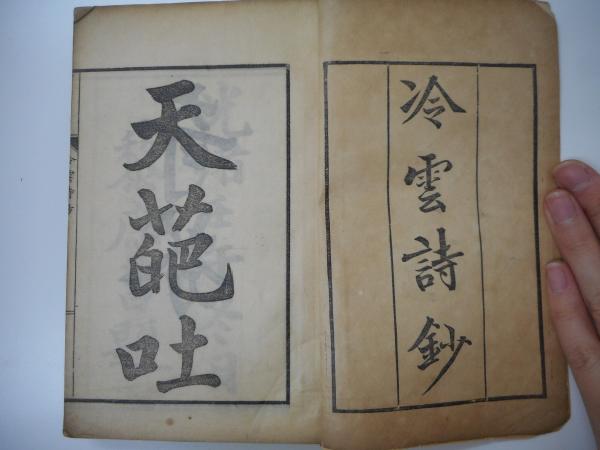 冷雲詩鈔
天葩吐